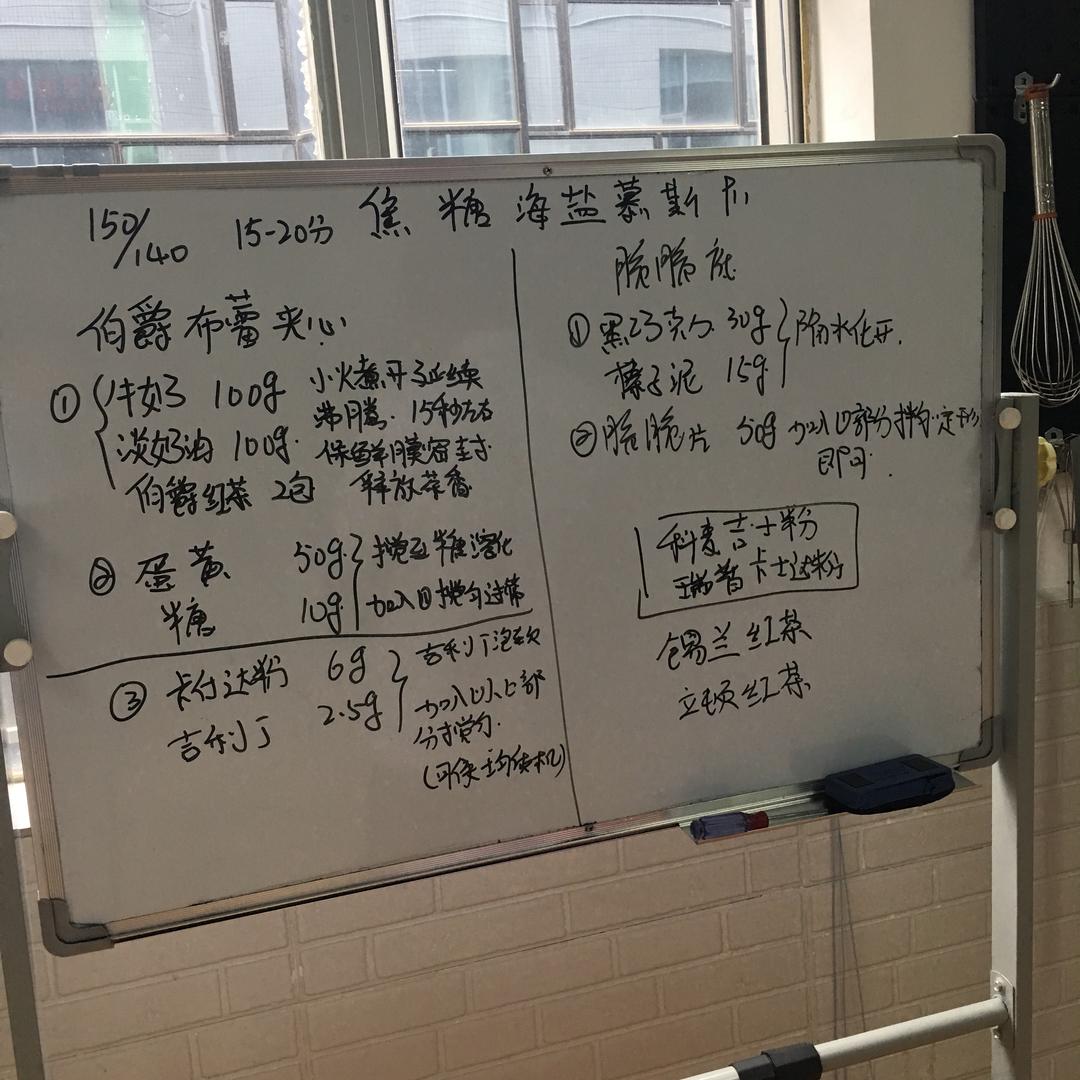 150/140 15-20分 焦糖海盐慕斯
伯爵布蕾夹心
① 牛奶 100g 小火煮开了延续
淡奶油 100g. 沸腾. 15秒左右
保鲜膜密封
伯爵红茶 2包 释放茶香
② 蛋黄 50g 搅至糖溶化
糖 10g 加入①搅匀过筛
③ 卡仕达粉 6g 吉利丁泡软
吉利丁 2.5g 加入以上部
分搅匀.
(可使均质机)
脆脆底
① 黑巧克力 30g 隔水化开.
榛子泥 15g
② 脆脆片 50g 加入①部分拌匀定形
即可.
科麦吉士粉
瑞普卡士达粉
锡兰红茶
立顿红茶